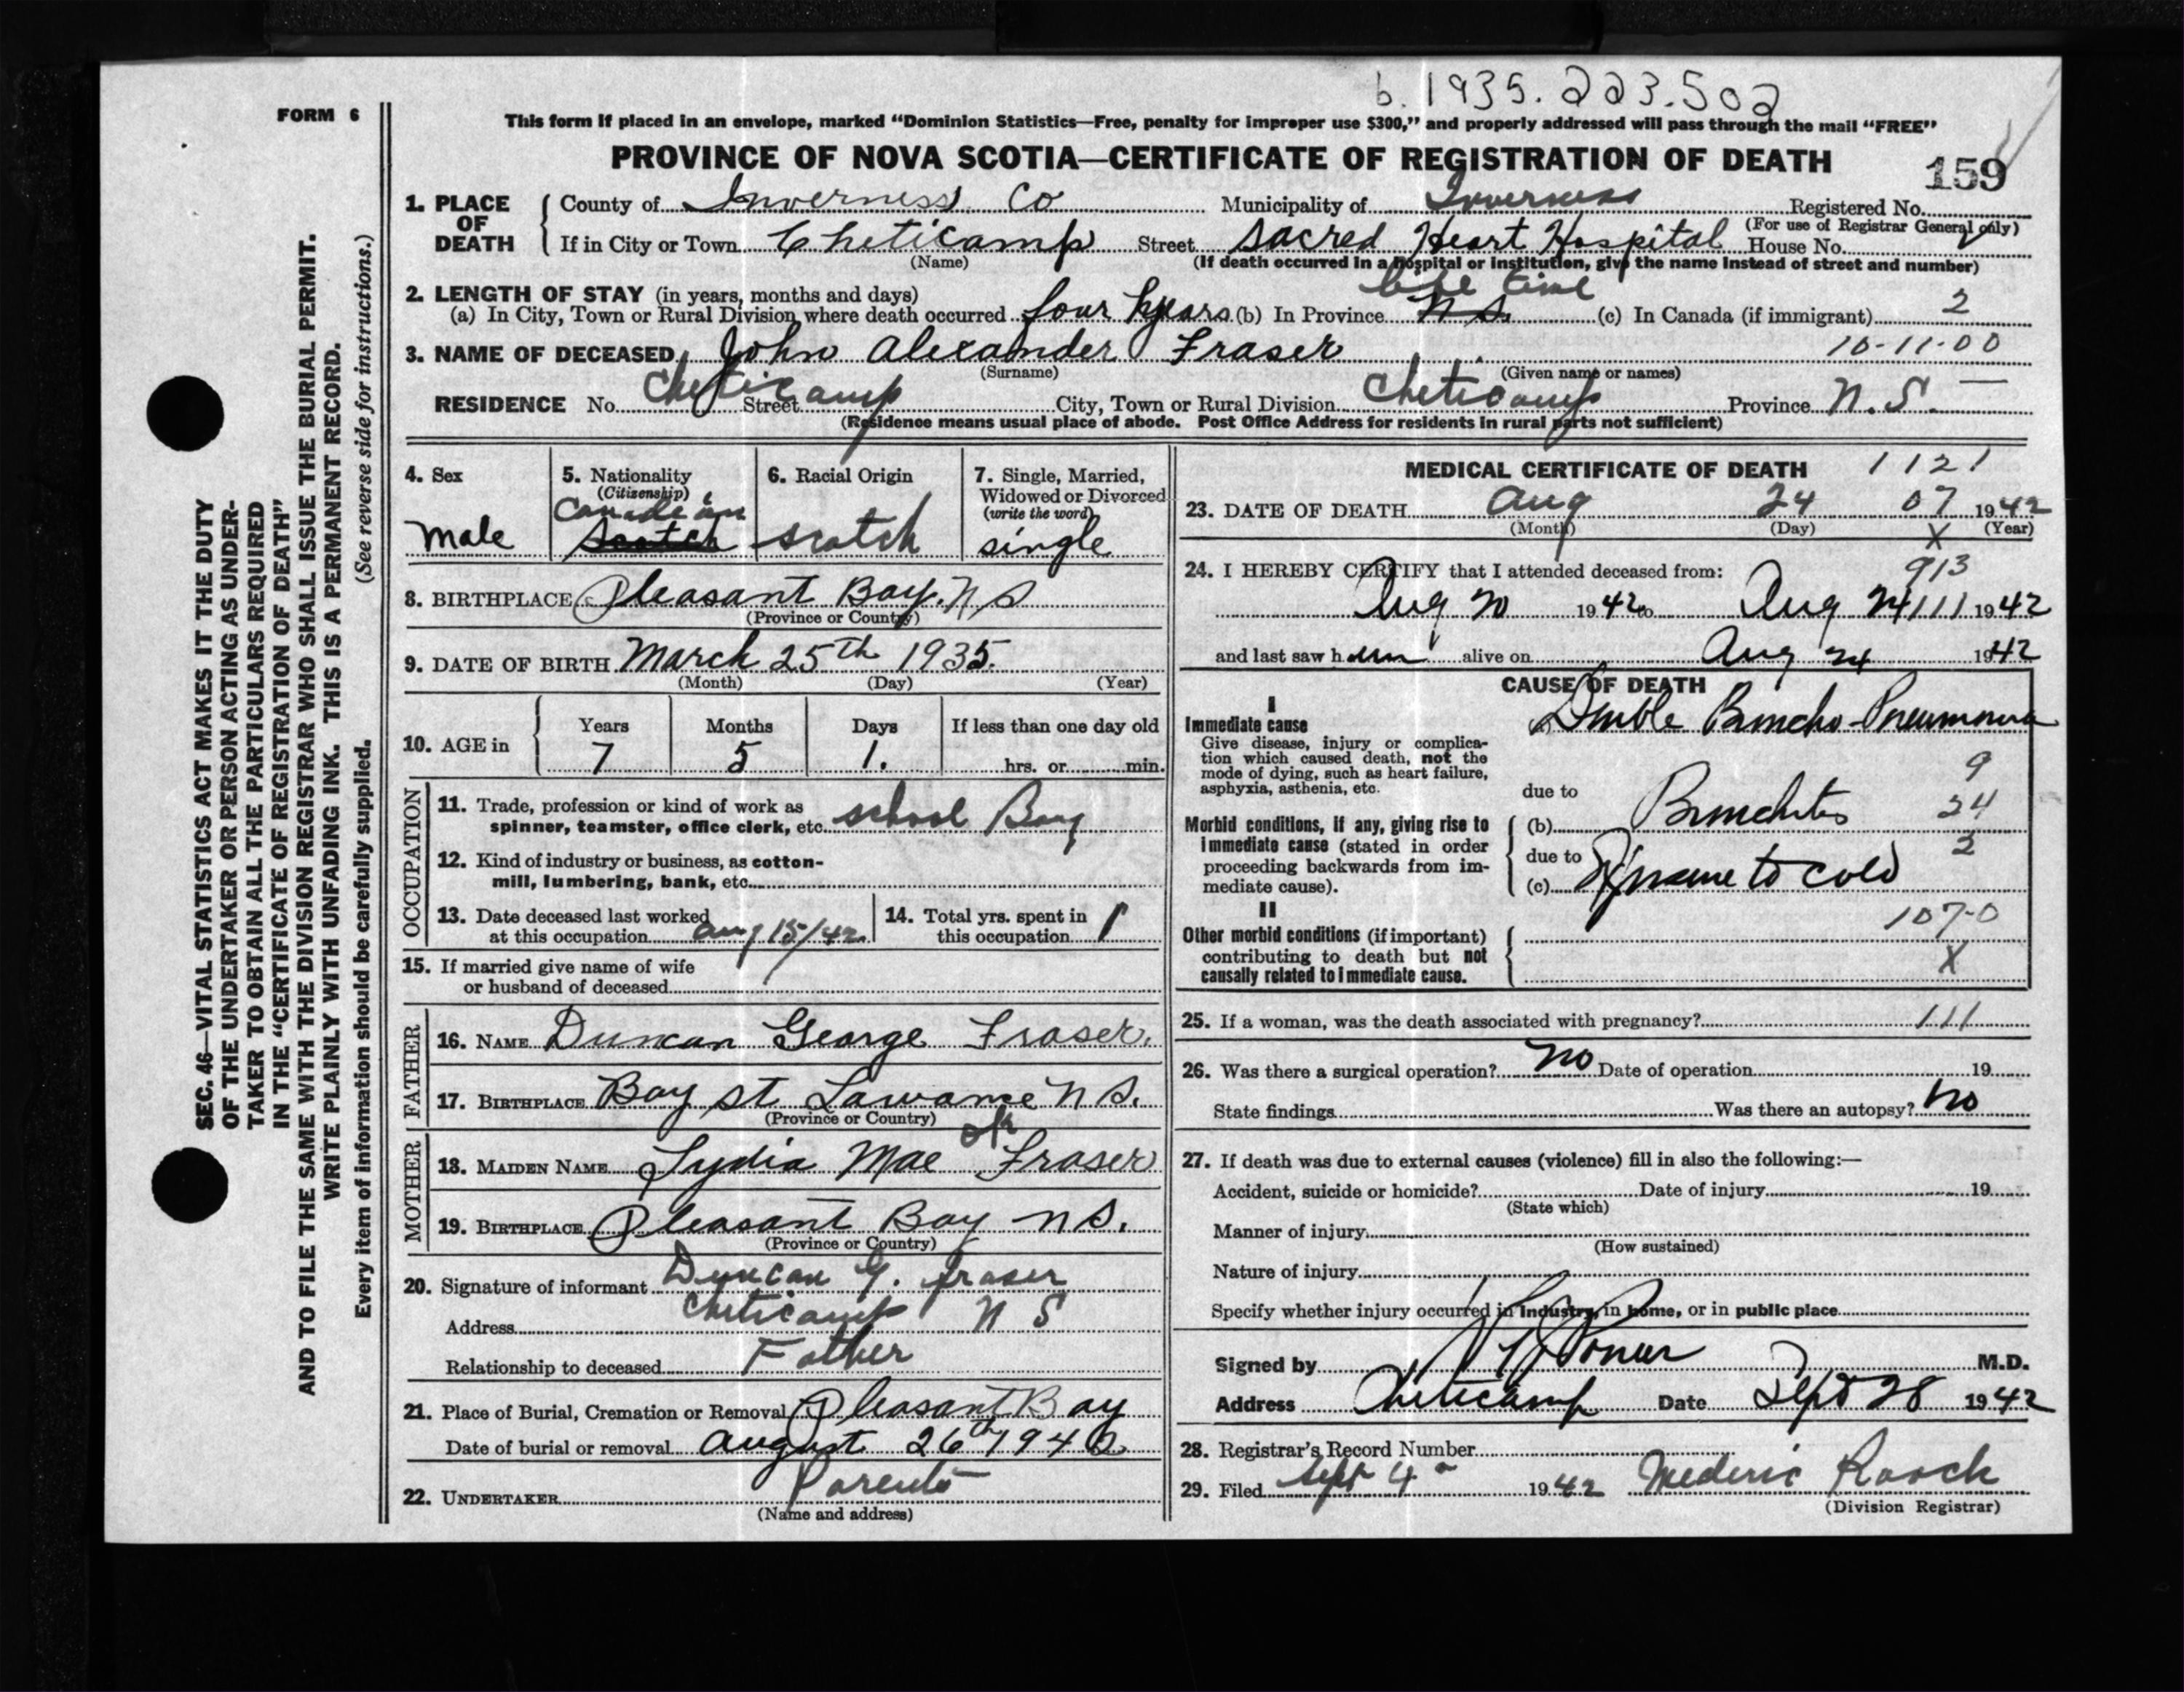 b. 1935. 223.502
FORM 6
This form if placed in an envelope, marked "Dominion Statistics—Free, penalty for improper use $300," and properly addressed will pass through the mail "FREE"
PROVINCE OF NOVA SCOTIA—CERTIFICATE OF REGISTRATION OF DEATH
159
1. PLACE OF DEATH
County of Inverness Co Municipality of Inverness Registered No.
(For use of Registrar General only)
If in City or Town Cheticamp Street Sacred Heart Hospital House No.
(Name) (If death occurred in a hospital or institution, give the name instead of street and number)
2. LENGTH OF STAY (in years, months and days) life time
(a) In City, Town or Rural Division where death occurred four years (b) In Province N S. (c) In Canada (if immigrant) 2
3. NAME OF DECEASED John Alexander Fraser 10-11-00
(Surname) (Given name or names)
RESIDENCE No. Cheticamp Street City, Town or Rural Division Cheticamp Province N. S. —
(Residence means usual place of abode. Post Office Address for residents in rural parts not sufficient)
4. Sex
male
5. Nationality
(Citizenship)
Canadian
Scotch
6. Racial Origin
scotch
7. Single, Married,
Widowed or Divorced
(write the word)
single
8. BIRTHPLACE Pleasant Bay. N S
(Province or Country)
9. DATE OF BIRTH March 25th 1935.
(Month) (Day) (Year)
10. AGE in
Years Months Days If less than one day old
7 5 1. hrs. or min.
OCCUPATION
11. Trade, profession or kind of work as
spinner, teamster, office clerk, etc. school Boy
12. Kind of industry or business, as cotton-
mill, lumbering, bank, etc.
13. Date deceased last worked
at this occupation aug 15/42
14. Total yrs. spent in
this occupation 1
15. If married give name of wife
or husband of deceased
FATHER
16. NAME Duncan George Fraser.
17. BIRTHPLACE Bay st Lawrance N S.
(Province or Country)
MOTHER
ok
18. MAIDEN NAME Lydia Mae Fraser
19. BIRTHPLACE Pleasant Bay N S.
(Province or Country)
20. Signature of informant Duncan G. fraser
Address cheticamp N S
Relationship to deceased Father
21. Place of Burial, Cremation or Removal Pleasant Bay
Date of burial or removal August 26th 1942
22. UNDERTAKER Parents
(Name and address)
MEDICAL CERTIFICATE OF DEATH 1121
23. DATE OF DEATH Aug 24 07 1942
(Month) (Day) X (Year)
24. I HEREBY CERTIFY that I attended deceased from: 913
Aug 20 1942 to Aug 24 111 1942
and last saw him alive on Aug 24 1942
CAUSE OF DEATH
I
Immediate cause
Give disease, injury or complica-
tion which caused death, not the
mode of dying, such as heart failure,
asphyxia, asthenia, etc.
(a) Double Broncho-Pneumonia
9
due to
Morbid conditions, if any, giving rise to
immediate cause (stated in order
proceeding backwards from im-
mediate cause).
(b) Bronchitis 24
due to 2
(c) Exposure to cold
107-0
II
Other morbid conditions (if important)
contributing to death but not
causally related to immediate cause.
X
25. If a woman, was the death associated with pregnancy? 111
26. Was there a surgical operation? No Date of operation 19
State findings Was there an autopsy? No
27. If death was due to external causes (violence) fill in also the following:—
Accident, suicide or homicide? Date of injury 19
(State which)
Manner of injury
(How sustained)
Nature of injury
Specify whether injury occurred in Industry, in home, or in public place
Signed by M.D.
Address Cheticamp Date Sept 28 1942
28. Registrar's Record Number
29. Filed Sept 4 1942 Mederic Roach
(Division Registrar)
SEC. 46—VITAL STATISTICS ACT MAKES IT THE DUTY
OF THE UNDERTAKER OR PERSON ACTING AS UNDER-
TAKER TO OBTAIN ALL THE PARTICULARS REQUIRED
IN THE "CERTIFICATE OF REGISTRATION OF DEATH"
AND TO FILE THE SAME WITH THE DIVISION REGISTRAR WHO SHALL ISSUE THE BURIAL PERMIT.
WRITE PLAINLY WITH UNFADING INK. THIS IS A PERMANENT RECORD.
Every item of information should be carefully supplied. (See reverse side for instructions.)